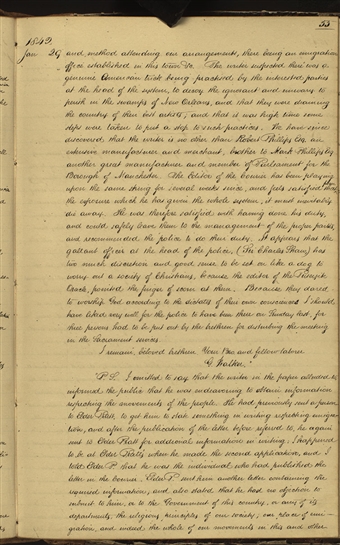 55
1842
Jan 29 and method attending our arrangements, there being an emigration
office established in this town &c. The writer suspected there was a
genuine American trick being practised by the interested parties
at the head of the system, to decoy the ignorant and unwary to
perish in the swamps of New Orleans, and that they were draining
the country of their best artists, and that it was high time some
steps was taken to put a stop to such practices. We have since
discovered, that the writer is no other than Robert Phillips Esq. an
extensive manufacturer and merchant, brother to Mark Phillips Esq
another great manufacturer and member of Parliament for the
Borough of Manchester. The Editor of the courier has been playing
upon the same string for several weeks since, and feels satisfied that from
the exposure which he has given the whole system, it must inevitably
die away. He was therefore satisfied with having done his duty,
and could safely leave them to the management of the proper parties,
and recommended the police to do their duty. It appears that the
gallant officer at the head of the police, (Sir Charles Shaw) has
too much discretion and good sense to be set on like a dog to
worry out a society of Christians, because the editor of the
pointed the finger of scorn at them. Because they dared
to worship God according to the dictates of their own consciences I should
have liked very well for the police to have been there on Sunday last, for
three persons had to be put out by the brethren for disturbing the meeting
in the Sacrament services.
I remain, beloved brethren Your Bro. and fellow laborer
G Walker.
P.S. I omitted to say that the writer in the paper alluded to
informed the public that he was endeavoring to obtain information
respecting the movements of the people. He had previously sent a person
to Elder Pratt, to get him to state something in writing respecting emigra-
tion, and after the publication of the letter before referred to, he again
sent to Elder Pratt for additional information in writing; I happened
to be at Elder Pratt's when he made the second application, and I
told Elder P. that he was the individual who had published the
letter in the courier. Elder P. sent him another letter containing the
required information, and also stated that he had no objection to
submit to him, or to the Government of this country, or any of its
departments, the religious principles of our society, our place of emi-
gration, and indeed the whole of our movements in this and other